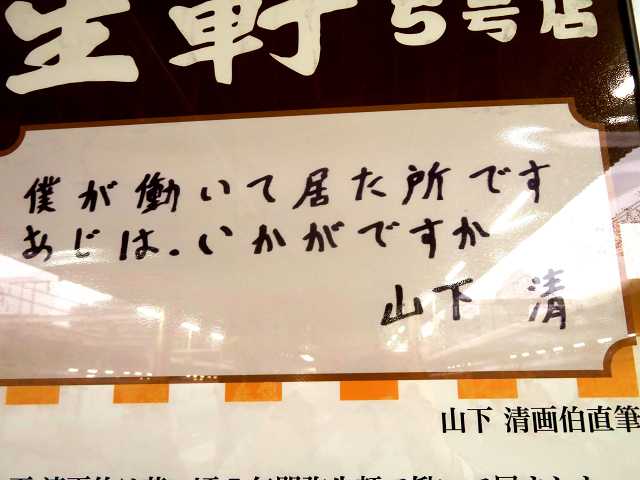 生軒 5号店
僕が働いて居た所です
あじは.いかがですか
山下 清
山下 清画伯直筆